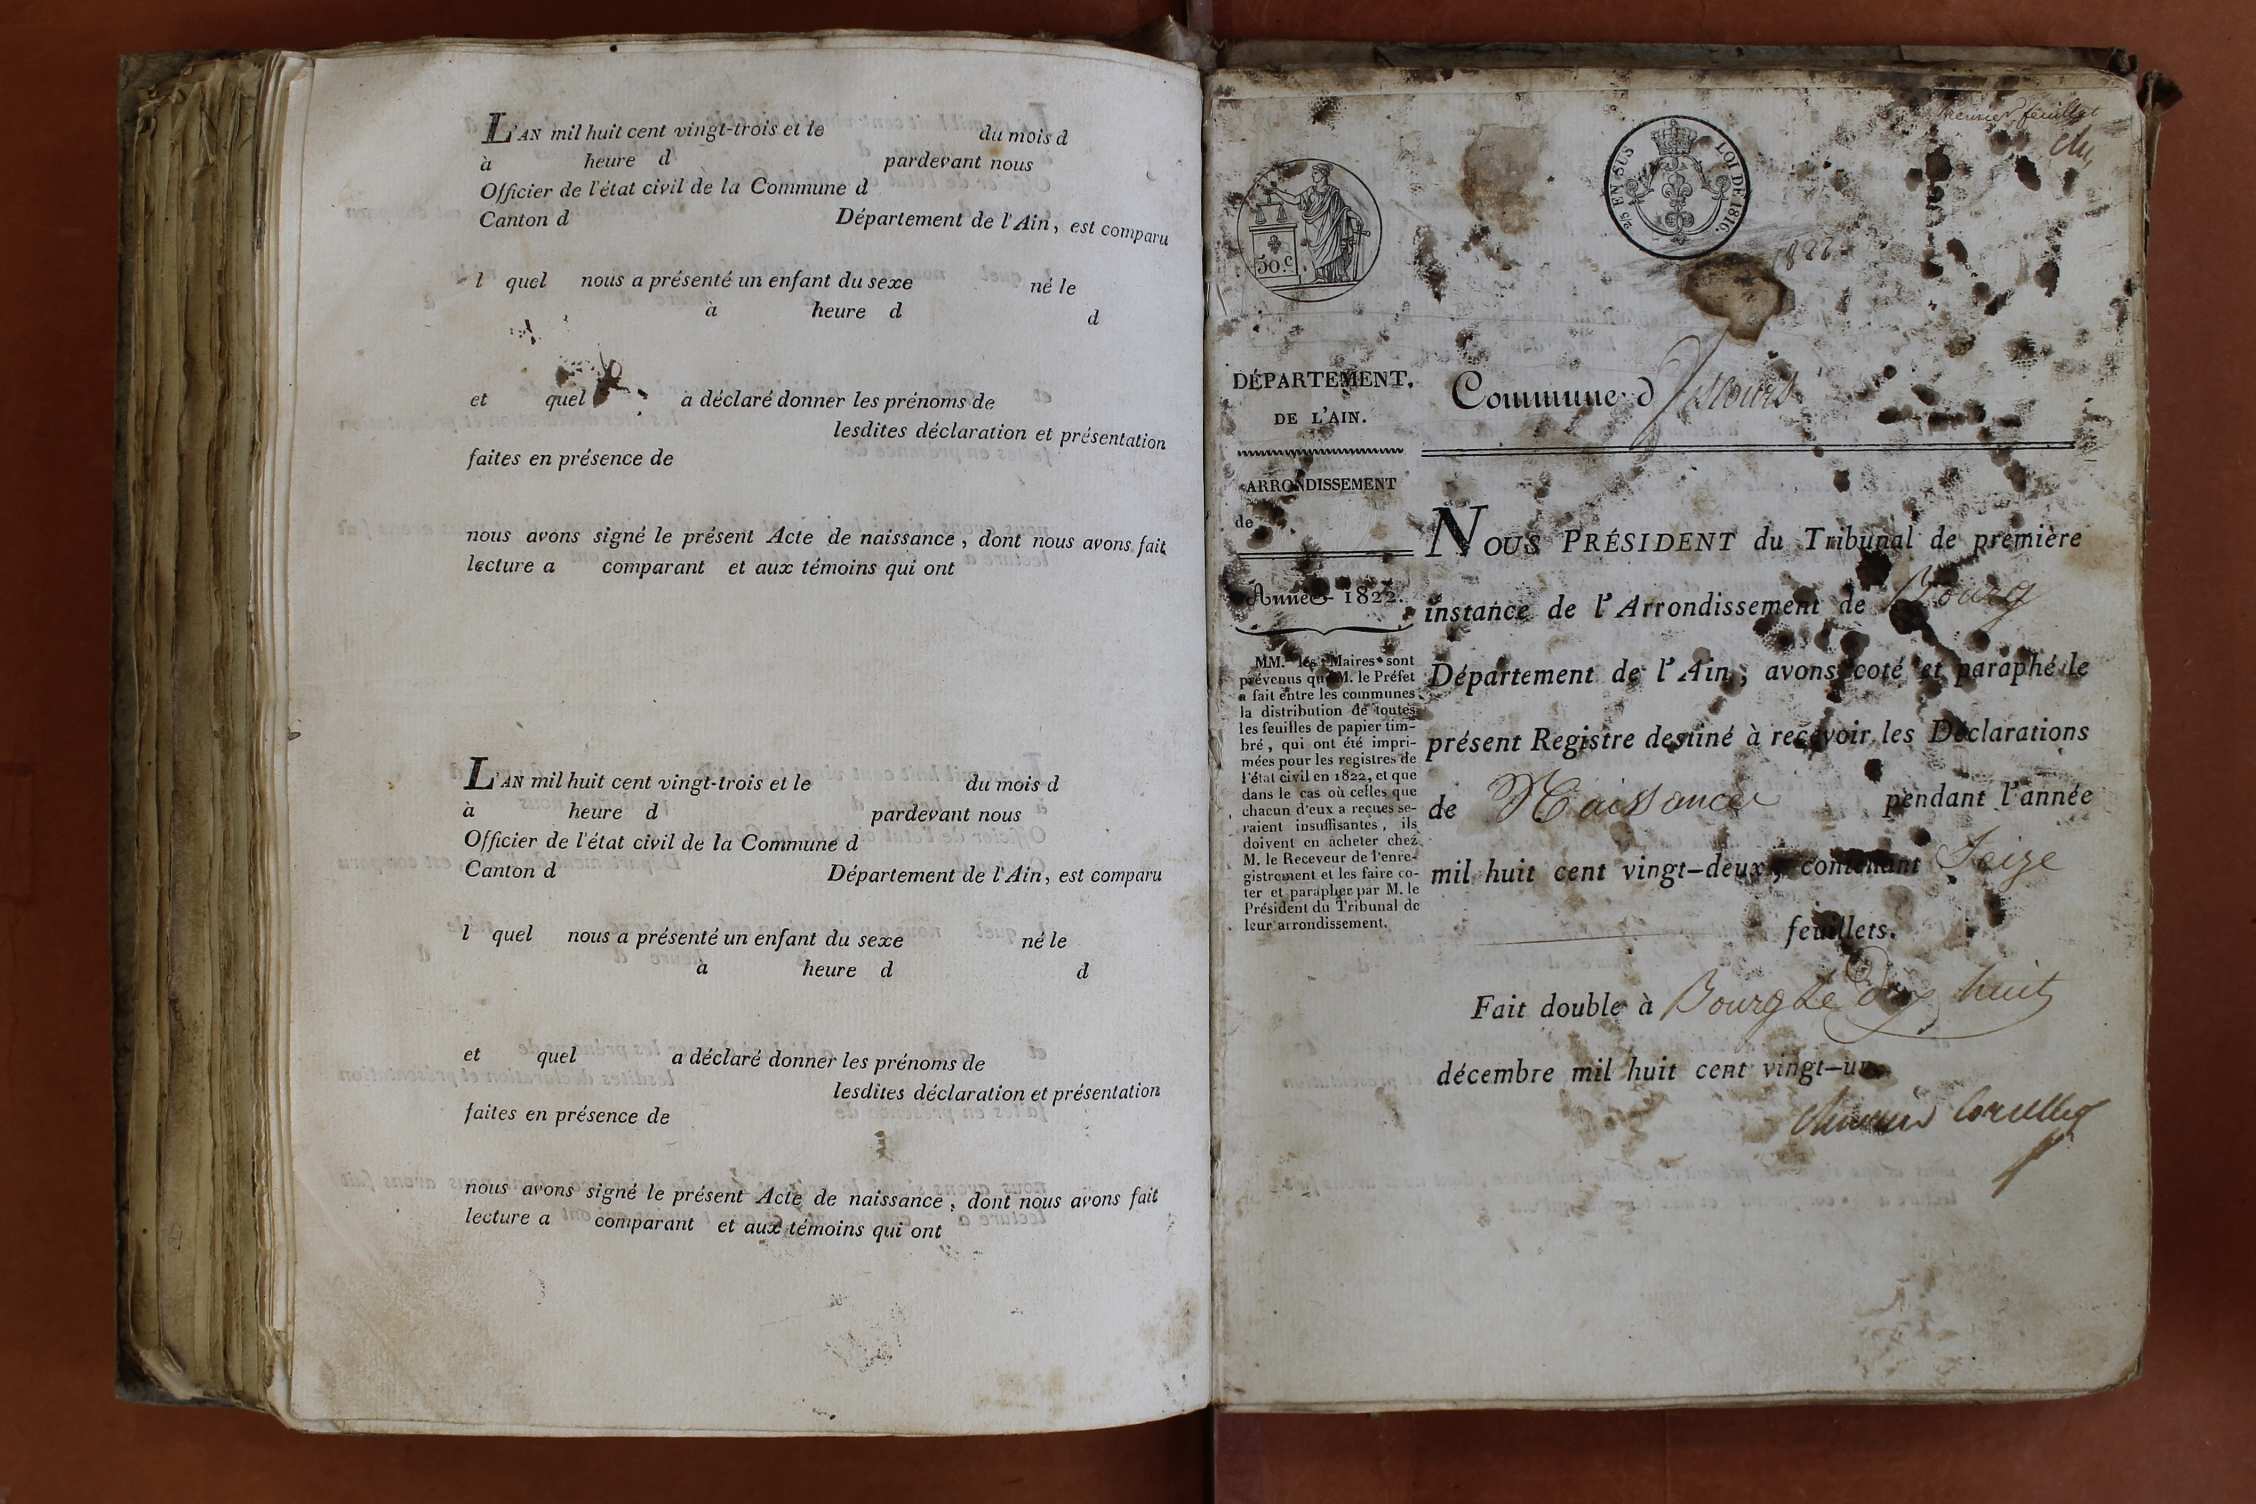 L'AN mil huit cent vingt-trois et le du mois d
à heure d pardevant nous
Officier de l'état civil de la Commune d
Canton d Département de l'Ain, est comparu
l quel nous a présenté un enfant du sexe né le
à heure d d
et quel a déclaré donner les prénoms de
lesdites déclaration et présentation
faites en présence de
nous avons signé le présent Acte de naissance, dont nous avons fait
lecture a comparant et aux témoins qui ont
L'AN mil huit cent vingt-trois et le du mois d
à heure d pardevant nous
Officier de l'état civil de la Commune d
Canton d Département de l'Ain, est comparu
l quel nous a présenté un enfant du sexe né le
a heure d d
et quel a déclaré donner les prénoms de
lesdites déclaration et présentation
faites en présence de
nous avons signé le présent Acte de naissance, dont nous avons fait
lecture a comparant et aux témoins qui ont
Premier feuillet
2/5 EN SUS LOI DE 1816.
50.c
1822
DÉPARTEMENT.
DE L'AIN.
ARRONDISSEMENT
de
Année 1822.
MM. les Maires sont
prévenus que M. le Préfet
a fait entre les communes
la distribution de toutes
les feuilles de papier tim-
bré, qui ont été impri-
mées pour les registres de
l'état civil en 1822, et que
dans le cas où celles que
chacun d'eux a reçues se-
raient insuffisantes, ils
doivent en acheter chez
M. le Receveur de l'enre-
gistrement et les faire co-
ter et parapher par M. le
Président du Tribunal de
leur arrondissement.
Commune d
NOUS PRÉSIDENT du Tribunal de première
instance de l'Arrondissement de Bourg
Département de l'Ain, avons coté et paraphé le
présent Registre destiné à recevoir les Déclarations
de Naissances pendant l'année
mil huit cent vingt-deux, contenant Seize
feuillets.
Fait double à Bourg le dix huit
décembre mil huit cent vingt-un.